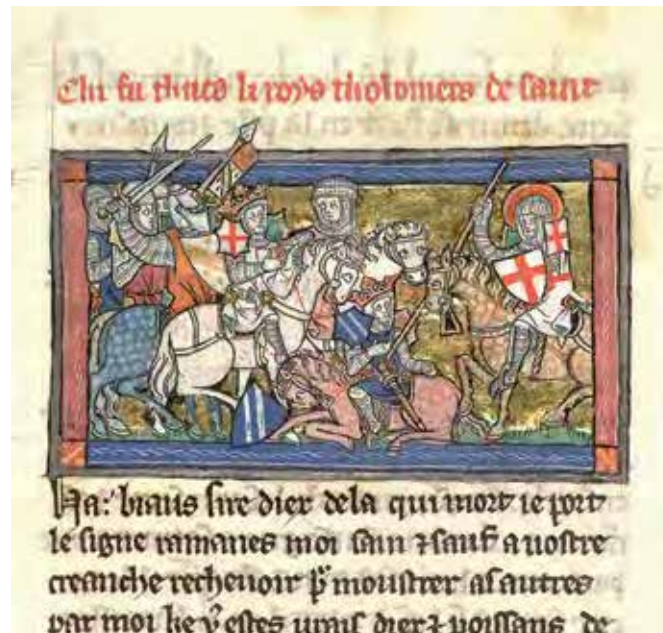 Chi fu thues li roys tholomers de saint
Ha: biaus sire diex dela qui mort ie port
le signe ramenes moi sain ⁊ sauf a uostre
creanche recheuoir moustrer as autres
par moi ke estes urais diex ⁊ poissans de